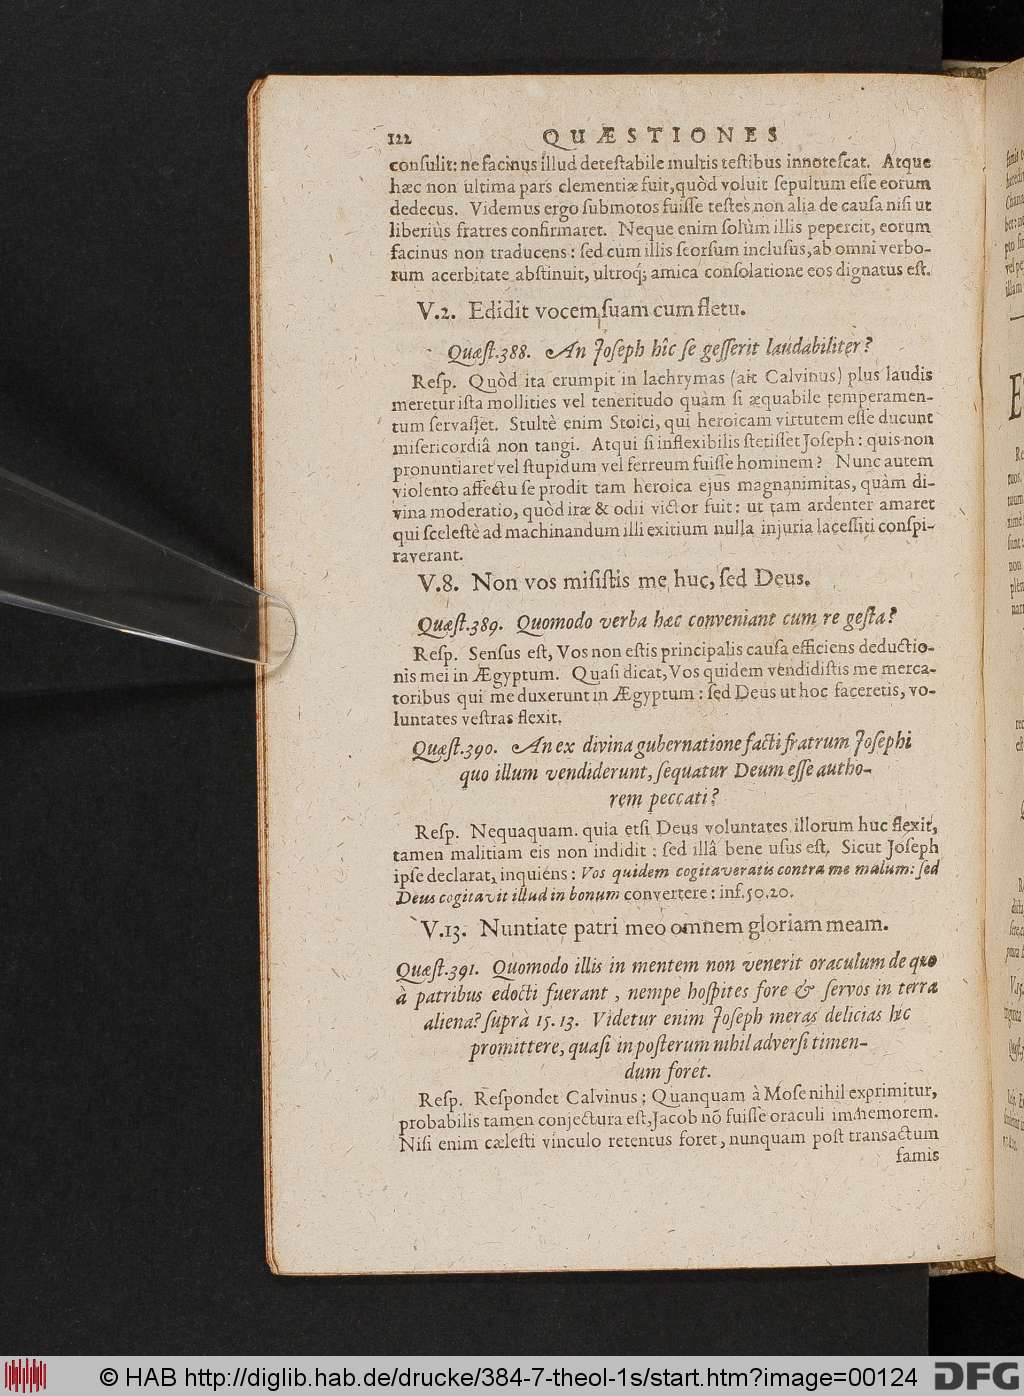 122 QUÆSTIONES
conſulit: ne facinus illud deteſtabile multis teſtibus innoteſcat. Atque
hæc non ultima pars clementiæ fuit, quòd voluit ſepultum eſſe eorum
dedecus. Videmus ergo ſubmotos fuiſſe teſtes non alia de cauſa niſi ut
liberiùs fratres confirmaret. Neque enim ſolùm illis pepercit, eorum
facinus non traducens: ſed cum illis ſcorſum incluſus, ab omni verbo-
rum acerbitate abſtinuit, ultroq; amica conſolatione eos dignatus eſt.
V.2. Edidit vocem ſuam cum fletu.
Quæſt.388. An Joſeph hîc ſe geſſerit laudabiliter?
Reſp. Quòd ita erumpit in lachrymas (ait Calvinus) plus laudis
meretur iſta mollities vel teneritudo quàm ſi æquabile temperamen-
tum ſervaſſet. Stultè enim Stoici, qui heroicam virtutem eſſe ducunt
miſericordiâ non tangi. Atqui ſi inflexibilis ſtetiſſet Joſeph: quis non
pronuntiaret vel ſtupidum vel ferreum fuiſſe hominem? Nunc autem
violento affectu ſe prodit tam heroica ejus magnanimitas, quàm di-
vina moderatio, quòd iræ & odii victor fuit: ut tam ardenter amaret
qui ſceleſtè ad machinandum illi exitium nulla injuria laceſſiti conſpi-
raverant.
V.8. Non vos miſiſtis me huc, ſed Deus.
Quæſt.389. Quomodo verba hæc conveniant cum re geſta?
Reſp. Senſus eſt, Vos non eſtis principalis cauſa efficiens deductio-
nis mei in Ægyptum. Quaſi dicat, Vos quidem vendidiſtis me merca-
toribus qui me duxerunt in Ægyptum: ſed Deus ut hoc faceretis, vo-
luntates veſtras flexit.
Quæſt.390. An ex divina gubernatione facti fratrum Joſephi
quo illum vendiderunt, ſequatur Deum eſſe autho-
rem peccati?
Reſp. Nequaquam. quia etſi Deus voluntates illorum huc flexit,
tamen malitiam eis non indidit: ſed illâ bene uſus eſt. Sicut Joſeph
ipſe declarat, inquiens: Vos quidem cogitaveratis contra me malum: ſed
Deus cogitavit illud in bonum convertere: inf. 50.20.
V.13. Nuntiate patri meo omnem gloriam meam.
Quæſt.391. Quomodo illis in mentem non venerit oraculum de quo
à patribus edocti fuerant, nempe hoſpites fore & ſervos in terra
aliena? ſuprà 15.13. Videtur enim Joſeph meras delicias hîc
promittere, quaſi in poſterum nihil adverſi timen-
dum foret.
Reſp. Reſpondet Calvinus; Quanquam à Moſe nihil exprimitur,
probabilis tamen conjectura eſt, Jacob nõ fuiſſe oraculi immemorem.
Niſi enim cæleſti vinculo retentus foret, nunquam poſt transactum
famis
© HAB http://diglib.hab.de/drucke/384-7-theol-1s/start.htm?image=00124
DFG